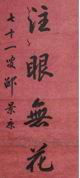 注眼無花
七十一叟邱景康